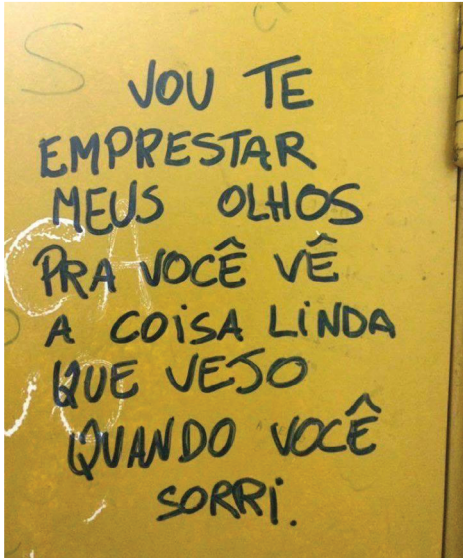 VOU TE
EMPRESTAR
MEUS OLHOS
PRA VOCÊ VÊ
A COISA LINDA
QUE VEJO
QUANDO VOCÊ
SORRI.